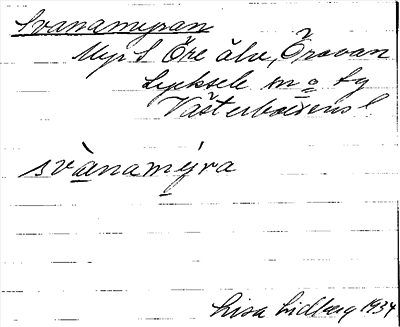 Svanamyran
Myr S Öre älv, Öravan
Lycksele m o. sg
Västerbottens l.
svànamýra
Lisa Lidberg 1934